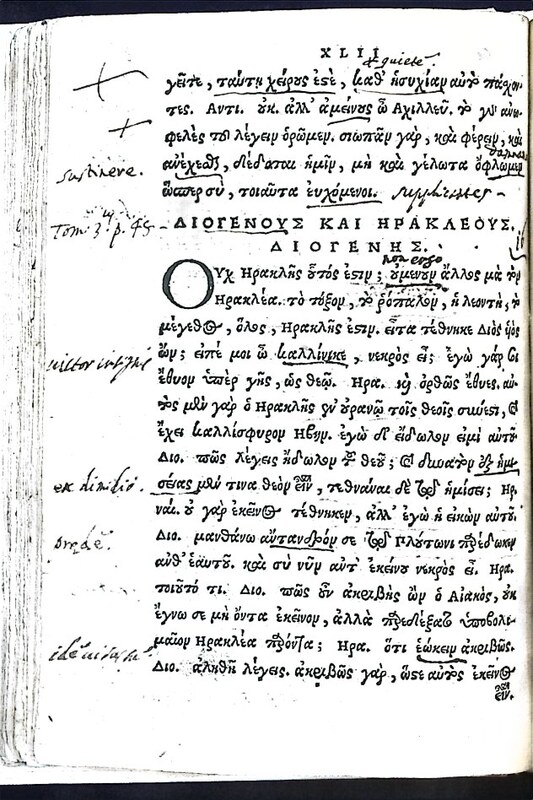 XLII
& quiete.
γεῖτε, ταύτῃ χείρους ἐστὲ, καθ' ἡσυχίαν αὐτὸ πάσχον-
τες. Αντι. οὐκ. ἀλλ' ἀμείνους ὦ Ἀχιλλεῦ. τὸ γὰρ ἀνω-
φελὲς τοῦ λέγειν ὁρῶμεν. σιωπᾶν γὰρ, καὶ φέρειν, καὶ
ἀνέχεσθαι, δέδοται ἡμῖν, μὴ καὶ γέλωτα ὄφλωμεν
sustinere.
ὥσπερ σὺ, τοιαῦτα εὐχόμενοι.
Tom. 3. p.
ΔΙΟΓΕΝΟΥΣ ΚΑΙ ΗΡΑΚΛΕΟΥΣ.
ΔΙΟΓΕΝΗΣ.
non ergo
Οὐχ Ηρακλῆς οὗτός ἐστιν; οὐμενουν ἄλλος μὰ τὸν
Ηρακλέα. τὸ τόξον, τὸ ῥόπαλον, ἡ λεοντῆ, τὸ
μέγεθος, ὅλος, Ηρακλῆς ἐστιν. εἶτα τέθνηκε Διὸς ὑὸς
ὤν; εἰπέ μοι ὦ καλλίνικε, νεκρὸς εἶ; ἐγὼ γάρ σοι
ἔθυον ὑπὲρ γῆς, ὡς θεῷ. Ηρα. καὶ ὀρθῶς ἔθυες. αὐ-
τὸς μὲν γὰρ ὁ Ηρακλῆς ἐν οὐρανῷ τοῖς θεοῖς σύνεστι, καὶ
ἔχει καλλίσφυρον Ηβην. ἐγὼ δ' εἴδωλον εἰμὶ αὐτοῦ.
Διο. πῶς λέγεις ἤδωλον τοῦ θεοῦ; καὶ δυνατὸν ἐξ ἡμι-
ex dimidio.
σείας μέν τινα θεὸν εἶναι, τεθνάναι δὲ τῷ ἡμίσει; Ηρ.
ναί. οὐ γὰρ ἐκεῖνος τέθνηκεν, ἀλλ' ἐγὼ ἡ εἰκὼν αὐτοῦ.
Διο. μανθάνω ἀντανδρόν σε τῷ Πλούτωνι παρέδωκεν
ἀνθ' ἑαυτοῦ. καὶ σὺ νῦν ἀντ' ἐκείνου νεκρὸς εἶ. Ηρα.
τοιοῦτό τι. Διο. πῶς οὖν ἀκριβὴς ὢν ὁ Αἰακὸς, οὐκ
ἔγνω σε μὴ ὄντα ἐκεῖνον, ἀλλὰ παρεδέξατο ὑποβολι-
μαῖον Ηρακλέα παρόντα; Ηρα. ὅτι ἐῴκειν ἀκριβῶς.
Διο. ἀληθῆ λέγεις. ἀκριβῶς γὰρ, ὥστε αὐτὸς ἐκεῖνος
εἶναι.